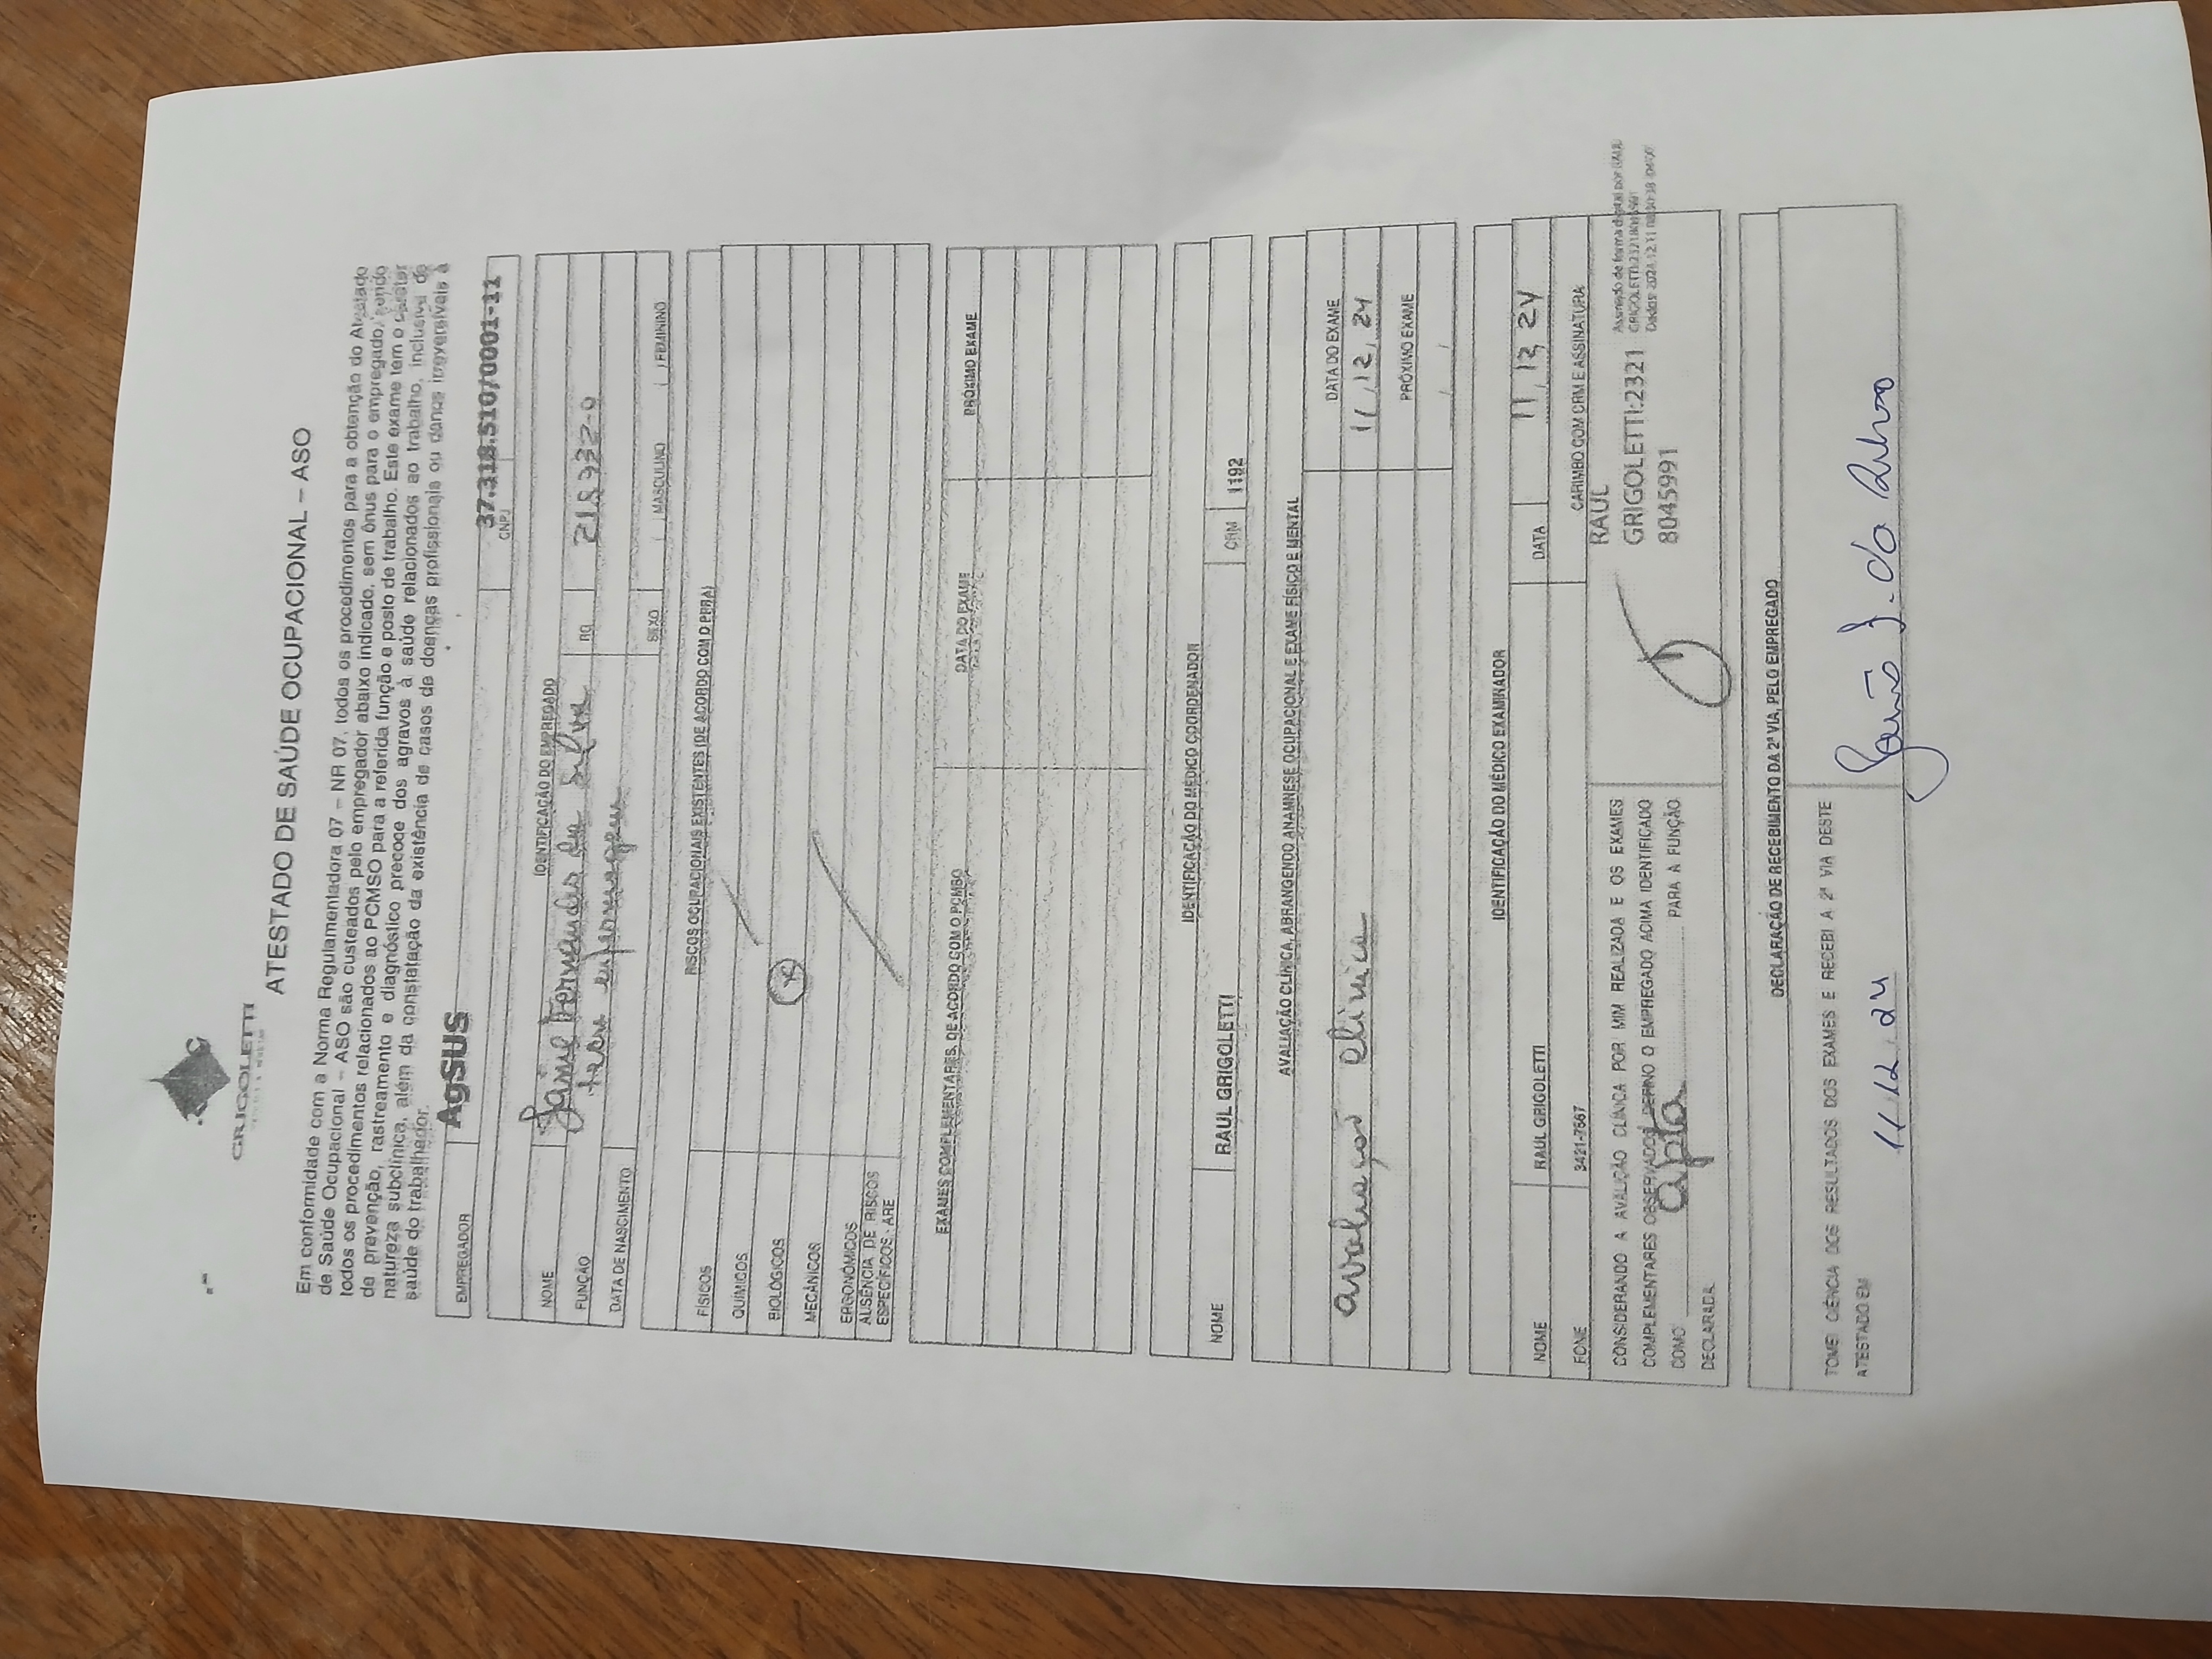 GRIGOLETTI
ATESTADO DE SAÚDE OCUPACIONAL – ASO
Em conformidade com a Norma Regulamentadora 07 – NR 07, todos os procedimentos para a obtenção do Atestado
de Saúde Ocupacional – ASO são custeados pelo empregador abaixo indicado, sem ônus para o empregado, sendo
todos os procedimentos relacionados ao PCMSO para a referida função e posto de trabalho. Este exame tem o caráter
de prevenção, rastreamento e diagnóstico precoce dos agravos à saúde relacionados ao trabalho, inclusive de
natureza subclínica, além da constatação da existência de casos de doenças profissionais ou danos irreversíveis à
saúde do trabalhador.
EMPREGADOR AgSUS CNPJ 37.318.510/0001-11
IDENTIFICAÇÃO DO EMPREGADO
NOME Fernandes da Silva RG
FUNÇÃO enfermagem
DATA DE NASCIMENTO SEXO ( ) MASCULINO ( ) FEMININO
RISCOS OCUPACIONAIS EXISTENTES (DE ACORDO COM O PPRA)
FÍSICOS
QUÍMICOS
BIOLÓGICOS x
MECÂNICOS
ERGONÔMICOS
AUSÊNCIA DE RISCOS
ESPECÍFICOS - ARE
EXAMES COMPLEMENTARES, DE ACORDO COM O PCMSO DATA DO EXAME PRÓXIMO EXAME
IDENTIFICAÇÃO DO MÉDICO COORDENADOR
NOME RAUL GRIGOLETTI CRM 1192
AVALIAÇÃO CLÍNICA, ABRANGENDO ANAMNESE OCUPACIONAL E EXAME FÍSICO E MENTAL
DATA DO EXAME
avaliação clinica 11/12/24
PRÓXIMO EXAME
/ /
IDENTIFICAÇÃO DO MÉDICO EXAMINADOR
NOME RAUL GRIGOLETTI DATA 11/12/24
FONE 3421-7567 CARIMBO COM CRM E ASSINATURA
CONSIDERANDO A AVALIÇÃO CLÍNICA POR MIM REALIZADA E OS EXAMES
COMPLEMENTARES OBSERVADOS, DEFINO O EMPREGADO ACIMA IDENTIFICADO
COMO apta PARA A FUNÇÃO
DECLARADA
RAUL
GRIGOLETTI:2321
8045991
Assinado de forma digital por RAUL
GRIGOLETTI:23218045991
Dados: 2024.12.11
DECLARAÇÃO DE RECEBIMENTO DA 2ª VIA, PELO EMPREGADO
TOMEI CIÊNCIA DOS RESULTADOS DOS EXAMES E RECEBI A 2ª VIA DESTE
ATESTADO EM 11 12 24